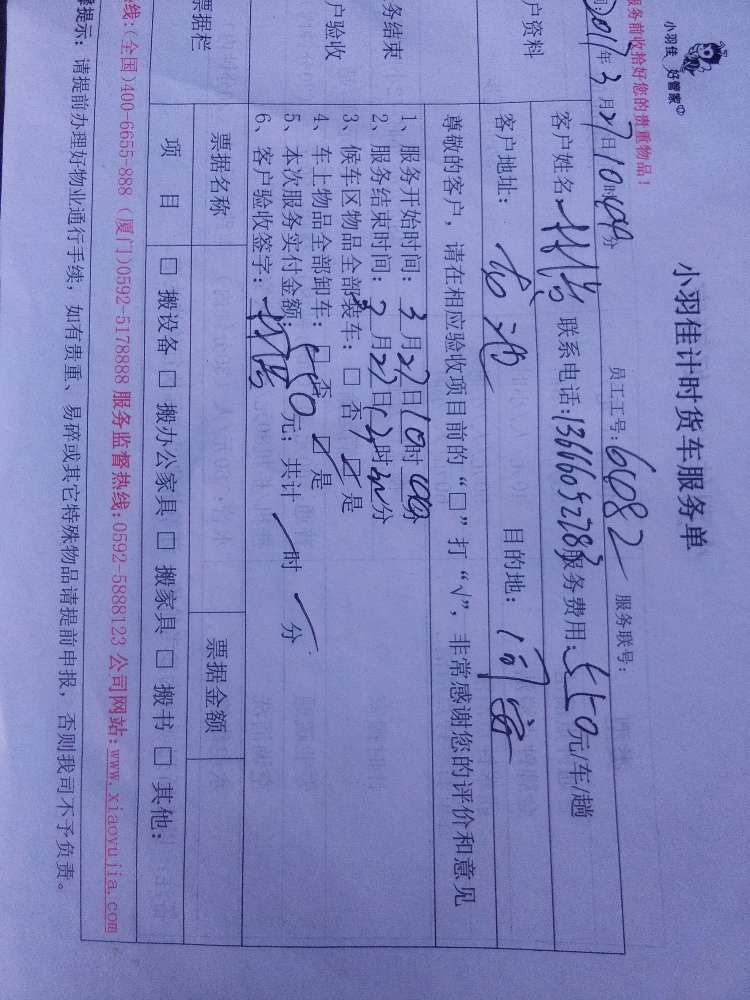 小羽佳 好管家
小羽佳计时货车服务单
服务前收拾好您的贵重物品！
员工工号：6082 服务联号：
2017年3月27日10时00分
户资料
客户姓名： 联系电话：13666092783 服务费用：550元/车/趟
客户地址： 目的地：同安
尊敬的客户，请在相应验收项目前的“□”打“√”，非常感谢您的评价和意见
务结束
户验收
1、服务开始时间：3月27日10时00分
2、服务结束时间：3月27日12时30分
3、候车区物品全部装车：□ 否 ☑ 是
4、车上物品全部卸车：□ 否 ☑ 是
5、本次服务实付金额：550元；共计 / 时 / 分
6、客户验收签字：
票据栏
票据名称 票据金额
项 目 □ 搬设备 □ 搬办公家具 □ 搬家具 □ 搬书 □ 其他：
线：(全国)400-6655-888 (厦门)0592-5178888 服务监督热线：0592-5888123 公司网站：www.xiaoyujia.com
提示：请提前办理好物业通行手续；如有贵重、易碎或其它特殊物品请提前申报，否则我司不予负责。